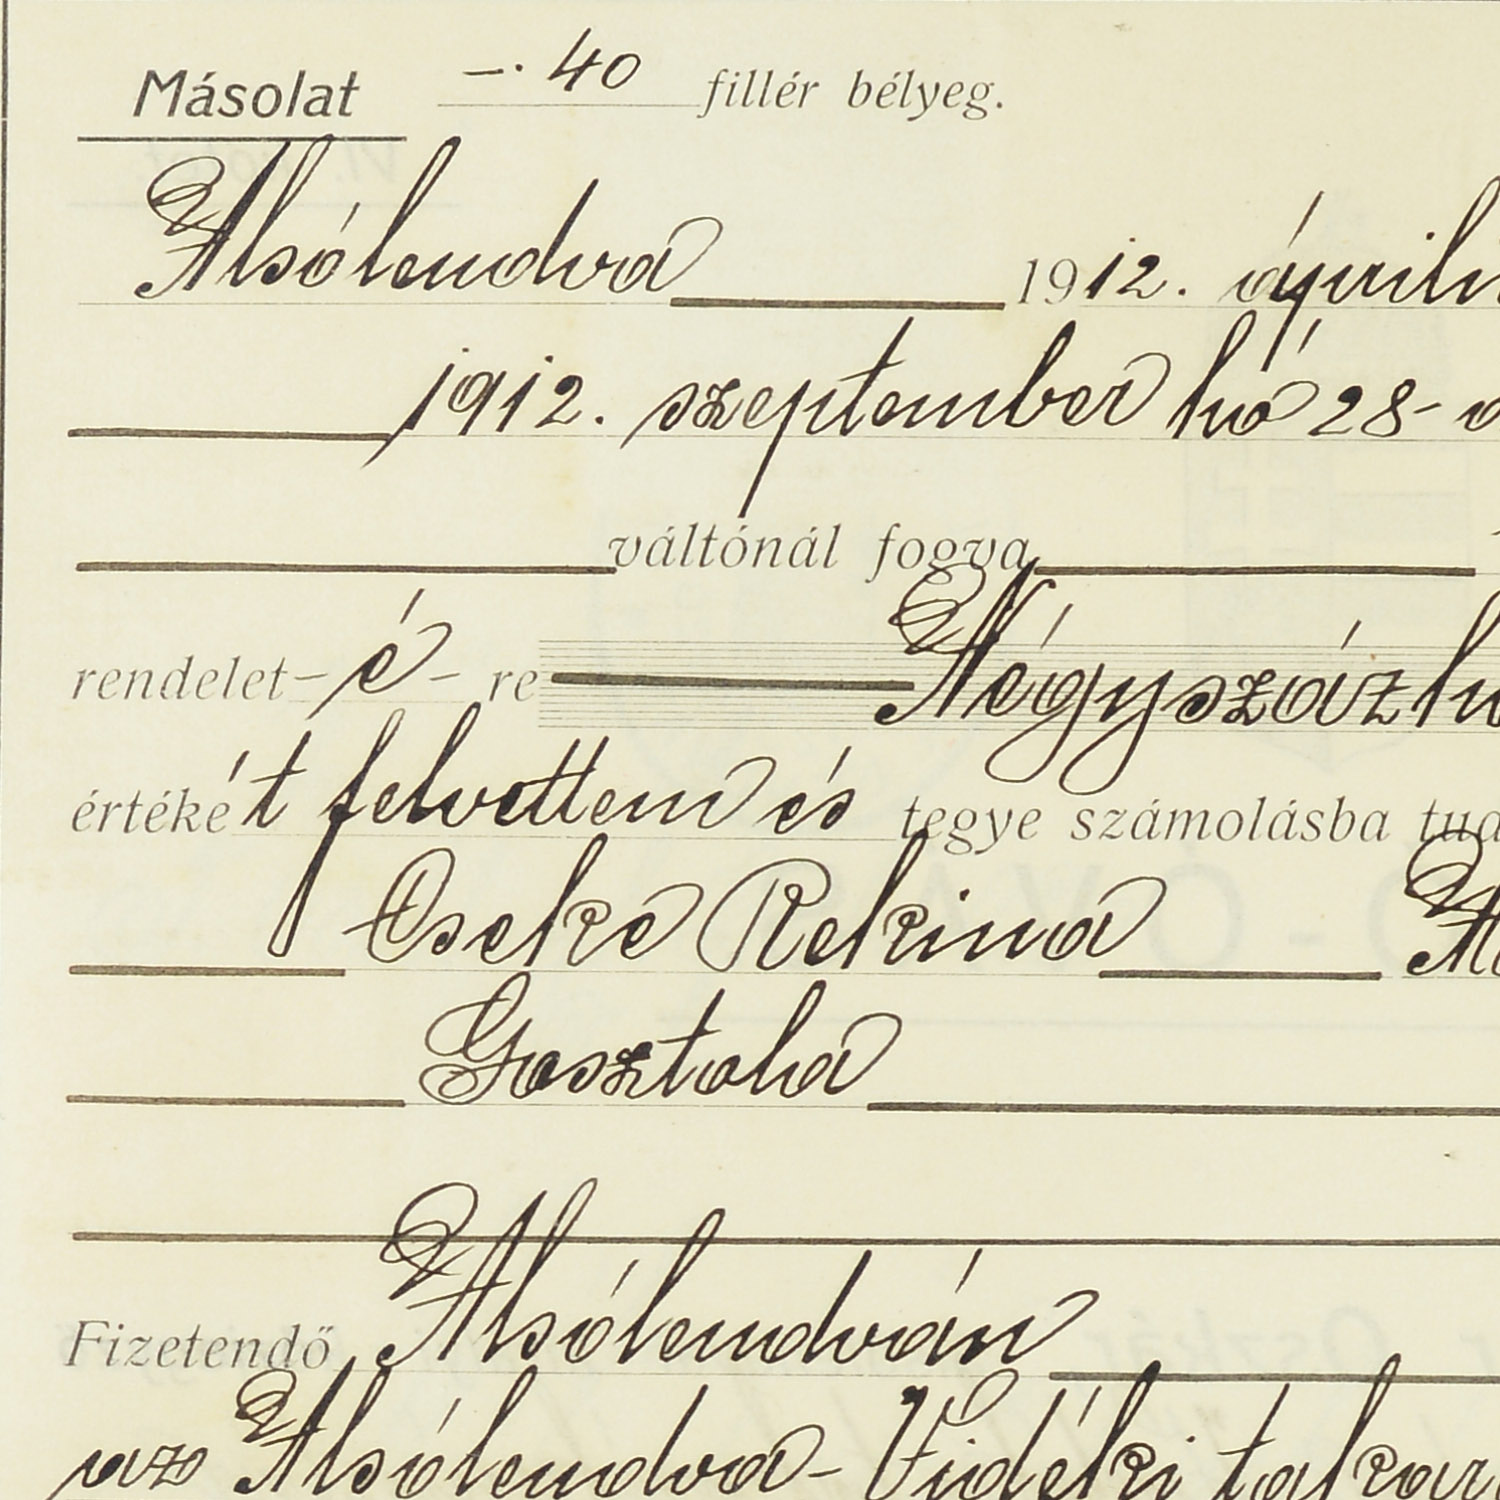 Másolat –· 40 fillér bélyeg.
Alsólendva 1912. április
1912. szeptember hó 28-
váltónál fogva
rendelet – é – re Négyszázhu
értékét felvettem és tegye számolásba tud
Cseke Regina Al
Gosztola
Fizetendő Alsólendván
az Alsólendva-Vidéki takar